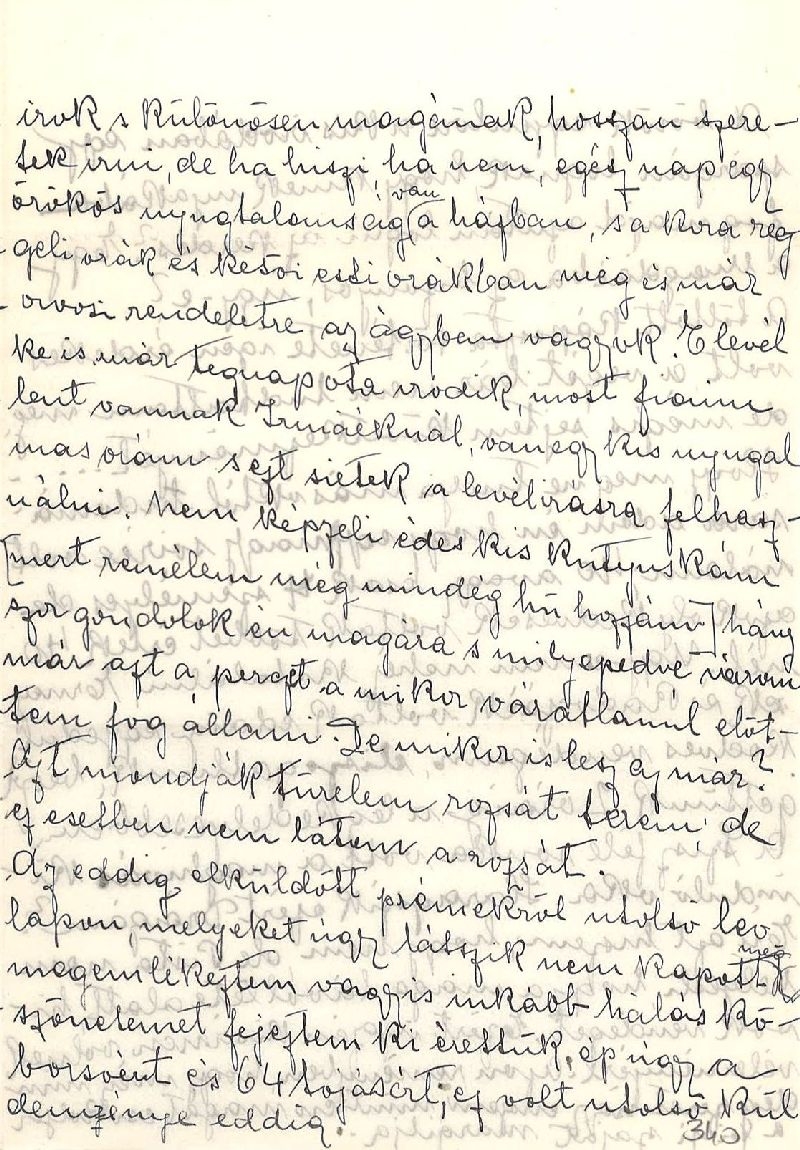 irok s különösen magának, hosszan szere-
tek irni, de ha hiszi, ha nem, egész nap egy
örökös nyugtalanság van a házban, s a kora reg
geli orák és késöi esti orákban még is már
orvosi rendeletre az ágyban vagyok. E levél
ke is már tegnap ota iródik, most fiaim
lent vannak Irmáéknál, van egy kis nyugal
mas orám s ezt sietek a levélirásra felhasz-
nálni. Nem képzeli édes kis Kutyuskám
[mert remélem még mindég hü hozzám] hány
szor gondolok én magára s mily epedve várom
már azt a percet a mikor váratlanúl elöt-
tem fog állani. De mikor is lesz az már?
Azt mondják türelem rozsát terem, de
ez esetben nem látom a rozsát.
Az eddig elküldött prémekröl utolsó levo
lapon, melyeket úgy látszik nem kapott még
megemlékeztem vagyis inkább hálás kö-
szönetemet fejeztem ki érettük, ép úgy a
borsóért és 64 tojásért; ez volt utolsó kül
deménye eddig.
340